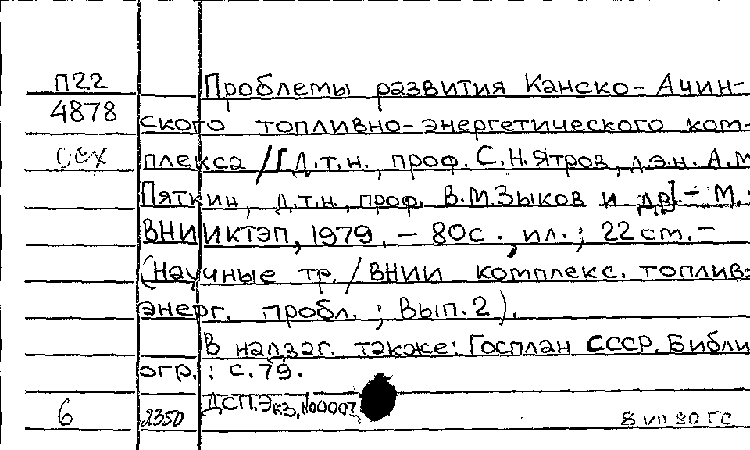 П22 Проблемы развития Канско-Ачин-
4878 ского топливно-энергетического ком-
плекса / [Д.т.н., проф. С.Н. Ятров, д.э.н. А.М.
Пяткин, д.т.н., проф. В.М. Зыков и др.] - М.:
ВНИИКТЭП, 1979. - 80с., ил.; 22 см. -
(Научные тр. / ВНИИ комплекс. топлив-
энерг. пробл.; Вып. 2).
В надзаг. также: Госплан СССР. Библи
огр.: с. 79.
6 2350 ДСП. Экз.